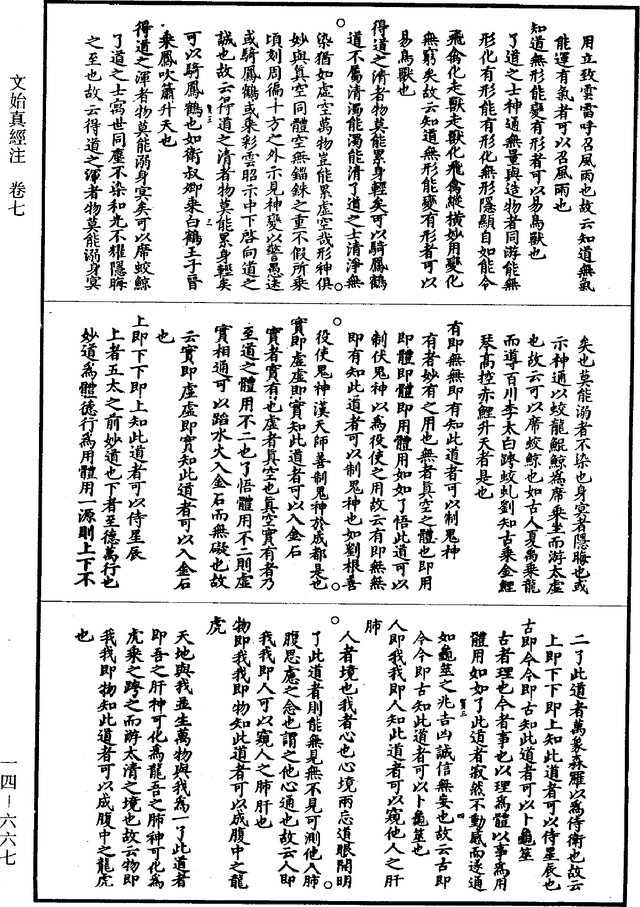 文始真經注 卷七
用立致雲雷呼召風雨也故云知道無氣
能運有氣者可以召風雨也
知道無形能變有形者可以易鳥獸也
了道之士神通無量與造物者同游能無
形化有形能有形化無形隱顯自如能令
飛禽化走獸走獸化飛禽縱橫妙用變化
無窮矣故云知道無形能變有形者可以
易鳥獸也
得道之清者物莫能累身輕矣可以騎鳳鶴
道不屬清濁能濁能清了道之士清淨無
染猶如虛空萬物豈能累虛空哉形神俱
妙與真空同體空無錙銖之重不假所乘
頃刻周徧十方之外示見神變以警愚迷
或騎鳳鶴或乘彩雲昭示中下啓向道之
誠也故云得道之清者物莫能累身輕矣
可以騎鳳鶴也如衛叔卿乘白鶴王子晉
乘鳳吹簫升天也
得道之渾者物莫能溺身冥矣可以席蛟鯨
了道之士寓世同塵不染和光不耀隱晦
之至也故云得道之渾者物莫能溺身冥
矣也莫能溺者不染也身冥者隱晦也或
示神通以蛟龍鯤鯨爲席乘坐而游太虛
也故云可以席蛟鯨也如古人夏禹乘龍
而導百川李太白跨蛟虬劉知古乘金鯉
琴高控赤鯉升天者是也
有即無無即有知此道者可以制鬼神
有者妙有之用也無者真空之體也即用
即體即體即用體用如如了悟此道可以
制伏鬼神以爲役使之用故云有即無無
即有知此道者可以制鬼神也如劉根善
役使鬼神漢天師善制鬼神於成都是也
實即虛虛即實知此道者可以入金石
實者實有也虛者真空也真空實有者乃
至道之體用不二也了悟體用不二則虛
實相通可以蹈水火入金石而無礙也故
云實即虛虛即實知此道者可以入金石
也
上即下下即上知此道者可以侍星辰
上者五太之前妙道也下者至德萬行也
妙道爲體德行爲用體用一源則上下不
二了此道者萬象森羅以爲侍衛也故云
上即下下即上知此道者可以侍星辰也
古即今今即古知此道者可以卜龜筮
古者理也今者事也以理爲體以事爲用
體用如如了此道者寂然不動感而遂通
如龜筮之兆吉凶誠信無妄也故云古即
今今即古知此道者可以卜龜筮也
人即我我即人知此道者可以窺他人之肝
肺
人者境也我者心也心境兩忘道眼開明
了此道者則能無見無不見可測他人肺
腹思慮之念也謂之他心通也故云人即
我我即人可以窺人之肺肝也
物即我我即物知此道者可以成腹中之龍
虎
天地與我並生萬物與我爲一了此道者
即吾之肝神可化爲龍吾之肺神可化爲
虎乘之跨之而游太清之境也故云物即
我我即物知此道者可以成腹中之龍虎
也
一四－六六七